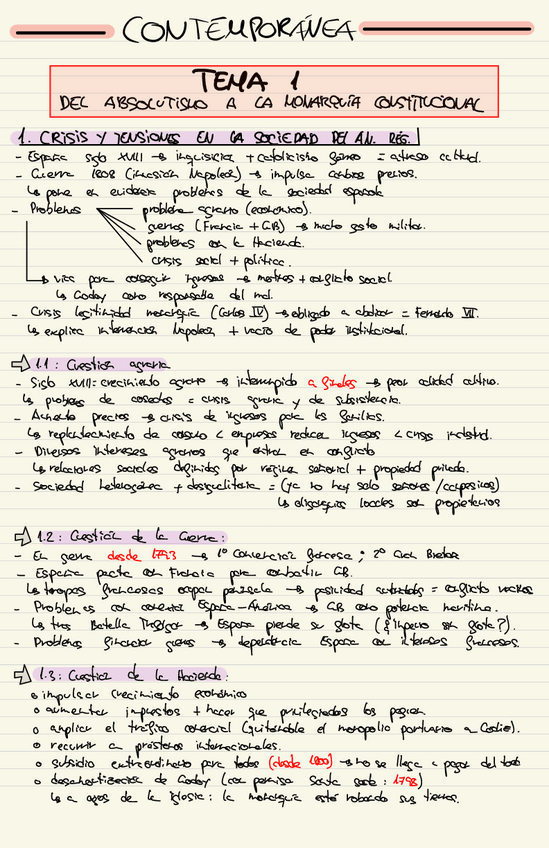 CONTEMPORÁNEA
TEMA 1
DEL ABSOLUTISMO A LA MONARQUÍA CONSTITUCIONAL
1. CRISIS Y TENSIONES EN LA SOCIEDAD DEL AN. RÉG.
- España siglo XVIII → inquisición + catolicismo = atraso cultural.
- Guerra 1808 (invasión Napoleón) → impulsa cambios previos.
↳ pone en evidencia problemas de la sociedad española
- Problemas
problema agrario (económico).
guerras (Francia + GB) → mucho gasto militar.
problemas con la Hacienda.
crisis social + política.
↳ vías para conseguir ingresos → motines + conflicto social
↳ Godoy como responsable del mal.
- Crisis legitimidad monarquía (Carlos IV) → obligado a abdicar = Fernando VII.
↳ explica intervención Napoleón + vacío de poder institucional.
⇒ 1.1: Cuestión agraria
- Siglo XVIII = crecimiento agrario → interrumpido a finales → peor calidad cultivo.
↳ problemas de cosechas = crisis agraria y de subsistencia.
- Aumento precios → crisis de ingresos para las familias.
↳ replanteamiento de consumo < empresas reducen ingresos < crisis industrial.
- Diversos intereses agrarios que entran en conflicto
↳ relaciones sociales definidas por régimen señorial + propiedad privada.
- Sociedad heterogénea + desigualitaria = (ya no hay solo señores/campesinos)
↳ oligarquías locales son propietarios
⇒ 1.2: Cuestión de la Guerra:
- En guerra desde 1793 → 1º Convención francesa; 2º Gran Bretaña
- España pacta con Francia para combatir GB.
↳ tropas francesas ocupan península → pasividad autoridades = conflicto vecinos
- Problemas con comercio España-América → GB como potencia marítima.
↳ tras Batalla Trafalgar → España pierde su flota (¿Imperio sin flota?).
- Problemas financiar guerras → dependencia España con intereses franceses.
⇒ 1.3: Cuestión de la Hacienda:
○ impulsar crecimiento económico
○ aumentar impuestos + hacer que privilegiados los paguen.
○ ampliar el tráfico comercial (quitándole el monopolio portuario a Cádiz).
○ recurrir a préstamos internacionales.
○ subsidio extraordinario para todos (desde 1800) → no se llega a pagar del todo
○ desamortización de Godoy (con permiso Santa Sede: 1798)
↳ a ojos de la Iglesia: la monarquía está robando sus tierras.